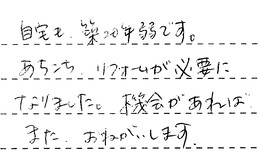 自宅も、築20年弱です。
あちこち、リフォームが必要に
なりました。機会があれば
また、おねがいします。